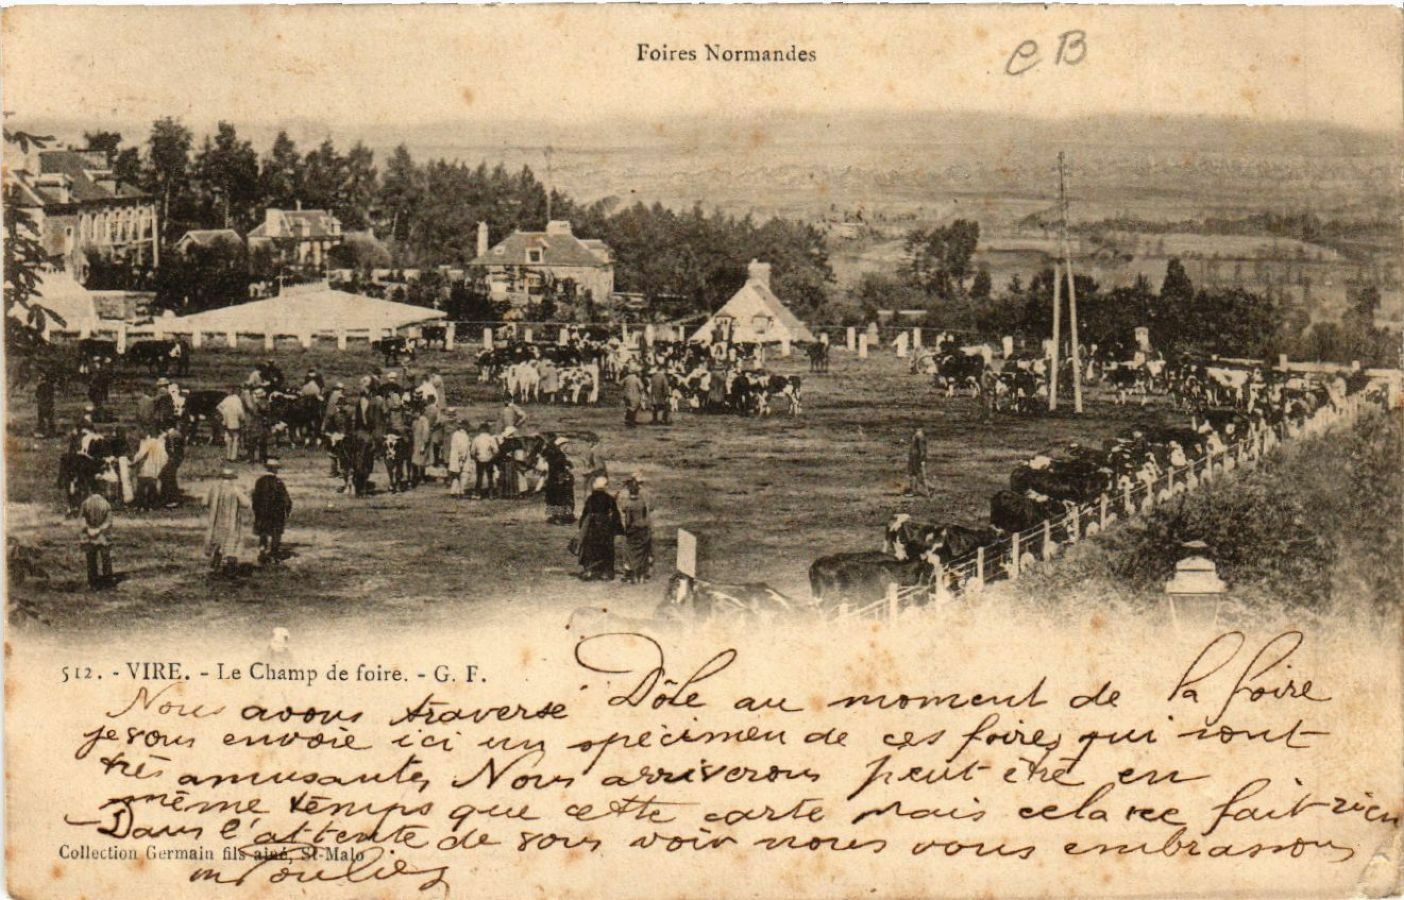 Foires Normandes
CB
512. - VIRE. - Le Champ de foire. - G. F.
Nous avons traversé Dôle au moment de la foire
je vous envoie ici un spécimen de ces foires qui sont
très amusantes, Nous arriverons peut-être en
même temps que cette carte mais cela ne fait rien
Dans l'attente de vous voir nous vous embrassons
Collection Germain fils ainé, St-Malo